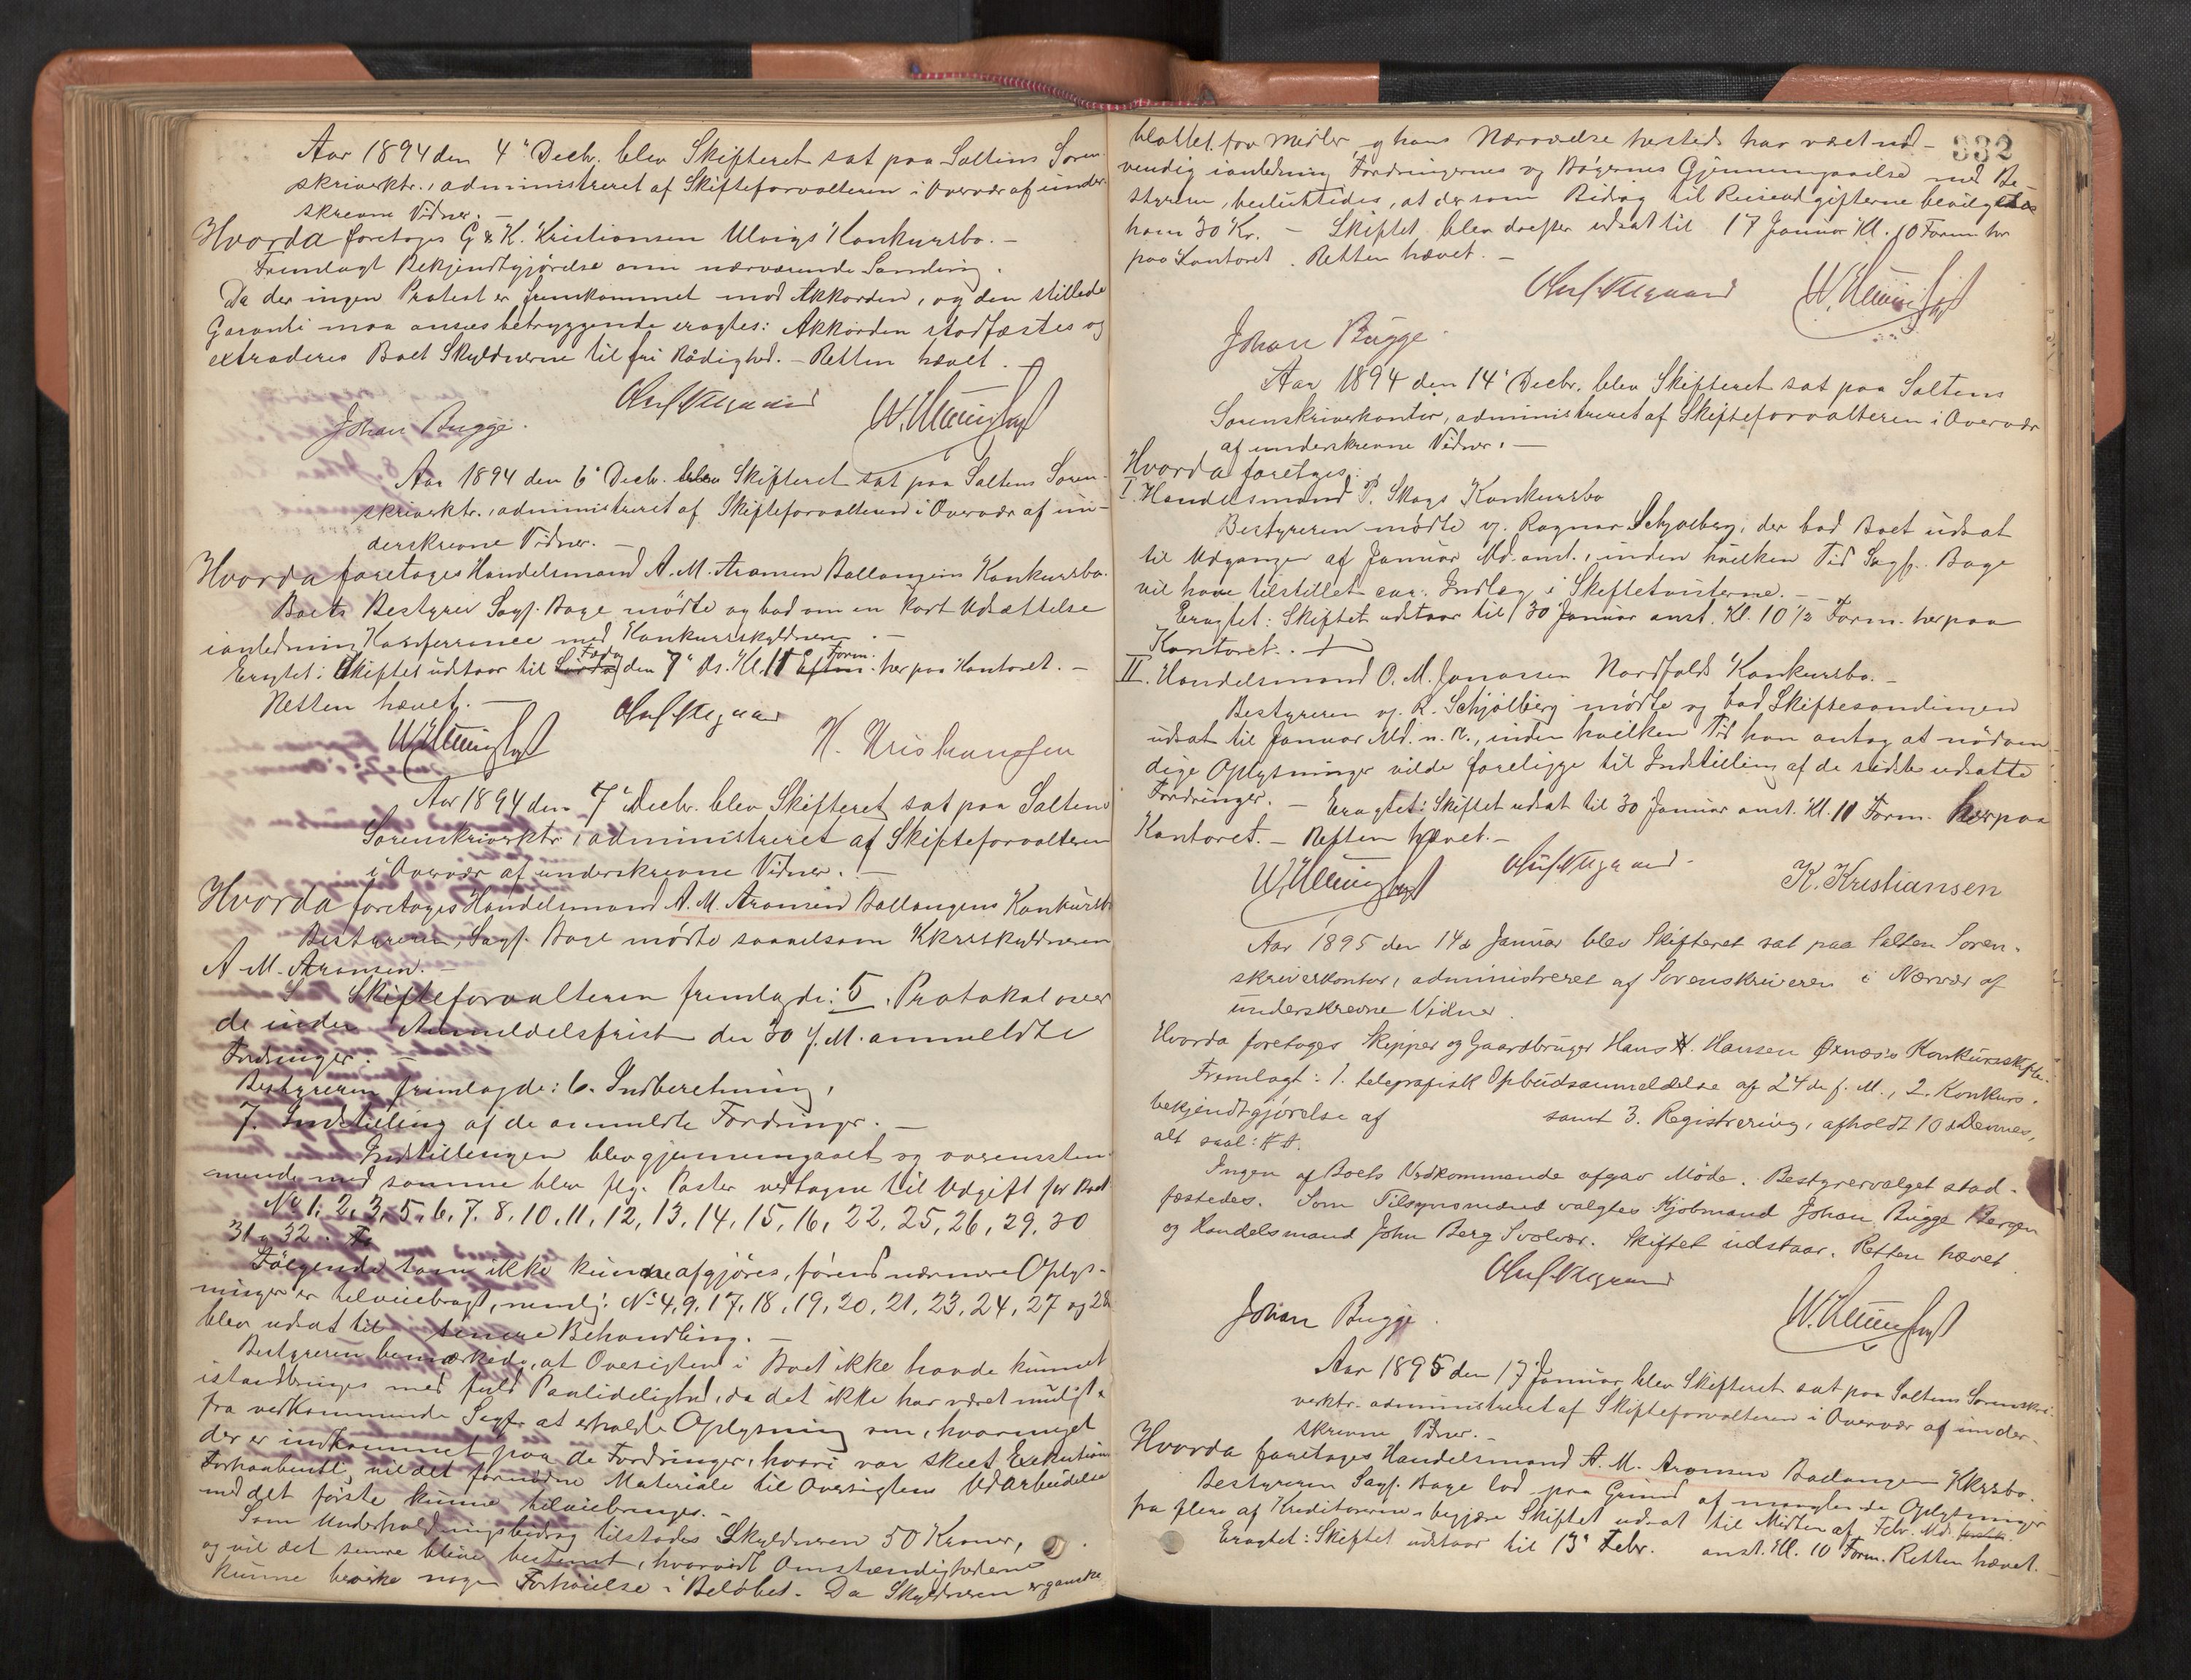 Aar 1894 den 4' Decbr. blev Skifteret sat paa Saltens Soren-
skriverktr., administreret af Skifteforvalteren i Overvær af under-
skrevne Vidner. –
Hvorda foretoges G & K. Kristiansen Ulvigs Konkursbo. –
Fremlagt Bekjendtgjørelse om nærværende Samling.
Da der ingen Protest er fremkommet mod Akkorden, og den stillede
Garanti maa ansees betryggende eragtes: Akkorden stadfæstes og
extraderes Boet Skyldnerne til fri Raadighed. – Retten hævet.
Johan Bugge.
Aar 1894 den 6' Decbr. blev Skifteret sat paa Saltens Soren-
skriverktr., administreret af Skifteforvalteren i Overvær af un-
derskrevne Vidner. –
Hvorda foretoges Handelsmand A. M. Aronsen Ballangens Konkursbo.
Boets Bestyrer Sagf. Bage mødte og bad om en kort Udsættelse
ianledning Konferrence med Konkursskyldneren. –
Fredag Form.
Eragtet: Skiftet udstaar til Lørdag den 7' ds. Kl. 11 Efterm. her paa Kontoret. –
Retten hævet. –
K. Kristiansen
Aar 1894 den 7' Decbr. blev Skifteret sat paa Saltens
Sorenskriverktr., administreret af Skifteforvalteren
i Overvær af underskrevne Vidner. –
Hvorda foretoges Handelsmand A. M. Aronsen Ballangens Konkursbo
Bestyreren, Sagf. Bage mødte saavelsom Kkrsskyldneren
A. M. Aronsen. –
Skifteforvalteren fremlagde: 5. Protokol over
de inden Anmeldelsfrist den 30 f. M. anmeldte
Fordringer. –
Bestyreren fremlagde: 6. Indberetning,
7. Indstilling af de anmeldte Fordringer. –
Indstillingen blev gjennemgaaet og overensstem-
mende med samme blev flg. Poster vedtagne til Udgift for Boet
No 1, 2, 3, 5, 6, 7, 8, 10, 11, 12, 13, 14, 15, 16, 22, 25, 26, 29, 30
31 og 32.
Følgende som ikke kunde afgjøres, førend nærmere Oplys-
ninger er tilveiebragt, nemlig: No 4, 9, 17, 18, 19, 20, 21, 23, 24, 27 og 28
blev udsat til senere Behandling. –
Bestyreren bemærkede, at Oversigten i Boet ikke havde kunnet
istandbringes med fuld Paalidelighed, da det ikke har været muligt
fra vedkommende Sagf. at erholde Oplysning om, hvormeget
der er indkommet paa de Fordringer, hvori var skeet Exekution
Forhaabentl. vil det fornødne Materiale til Oversigtens Udarbeidelse
med det første kunne tilveiebringes. –
Som Underholdningsbidrag tilstodes Skyldneren 50 Kroner,
og vil det senere blive bestemt, hvorvidt Omstændighederne
kunne bevirke nogen Forhøielse i Beløbet. Da Skyldneren er ganske
332
blottet for Midler, og hans Nærværelse hersteds har været nød-
vendig ianledning Fordringernes og Bøgernes Gjennemgaaelse med Be-
styreren, besluttedes, at der som Bidrag til Reiseudgifterne bevilgedes
ham 30 Kr. – Skiftet blev derefter udsat til 17 Januar Kl. 10 Form. her
paa Kontoret. Retten hævet. –
Johan Bugge.
Aar 1894 den 14' Decbr. blev Skifteret sat paa Saltens
Sorenskriverkontor, administreret af Skifteforvalteren i Overvær
af underskrevne Vidner. –
Hvorda foretoges:
I. Handelsmand P. Skogs Konkursbo
Bestyreren mødte v. Ragnar Schjølberg, der bad Boet udsat
til Udgangen af Januar Md. anst., inden hvilken Tid Sagf. Bage
vil have tilstillet Indlæg i Skiftetvisterne. –
Eragtet: Skiftet udstaar til 30 Januar anst. Kl. 10 1/2 Form. her paa
Kontoret.
II. Handelsmand O. M. Jonassen Nordfolds Konkursbo. –
Bestyreren v. R. Schjølberg mødte og bad Skiftesamlingen
udsat til Januar Md. n. A., inden hvilken Tid han antog at nødven-
dige Oplysninger vilde foreligge til Indstilling af de sidste udsatte
Fordringer. – Eragtet: Skiftet udsat til 30 Januar anst. Kl. 11 Form. her paa
Kontoret. – Retten hævet. –
K. Kristiansen
Aar 1895 den 14de Januar blev Skifteret sat paa Salten Soren-
skriverkontor, administreret af Sorenskriveren i Nærvær af
underskrevne Vidner.
Hvorda foretoges Skipper og Gaardbruger Hans A. Hansen Øxnæs's Konkursskifte.
Fremlagt: 1. telegrafisk Opbudsanmeldelse af 24de f. M., 2. Konkurs-
bekjendtgjørelse af samt 3. Registrering, afholdt 10de Dennes,
alt saal:
Ingen af Boets Vedkommende afgav Møde. Bestyrervalget stad-
fæstedes. Som Tilsynsmænd valgtes Kjøbmand Johan Bugge Bergen
og Handelsmand John Berg Svolvær. Skiftet udstaar. Retten hævet.
Johan Bugge.
Aar 1895 den 17 Januar blev Skifteret sat paa Saltens Sorenskri-
verktr. administreret af Skifteforvalteren i Overvær af under-
skrevne Vidner. –
Hvorda foretoges Handelsmand A. M. Aronsen Ballangen Kkrsbo.
Bestyreren Sagf. Bage lod paa Grund af manglende Oplysninger
fra flere af Kreditorerne begjære Skiftet udsat til Midten af Febr. Md.
Eragtet: Skiftet udstaar til 13' Febr. anst. Kl. 10 Form. Retten hævet. –